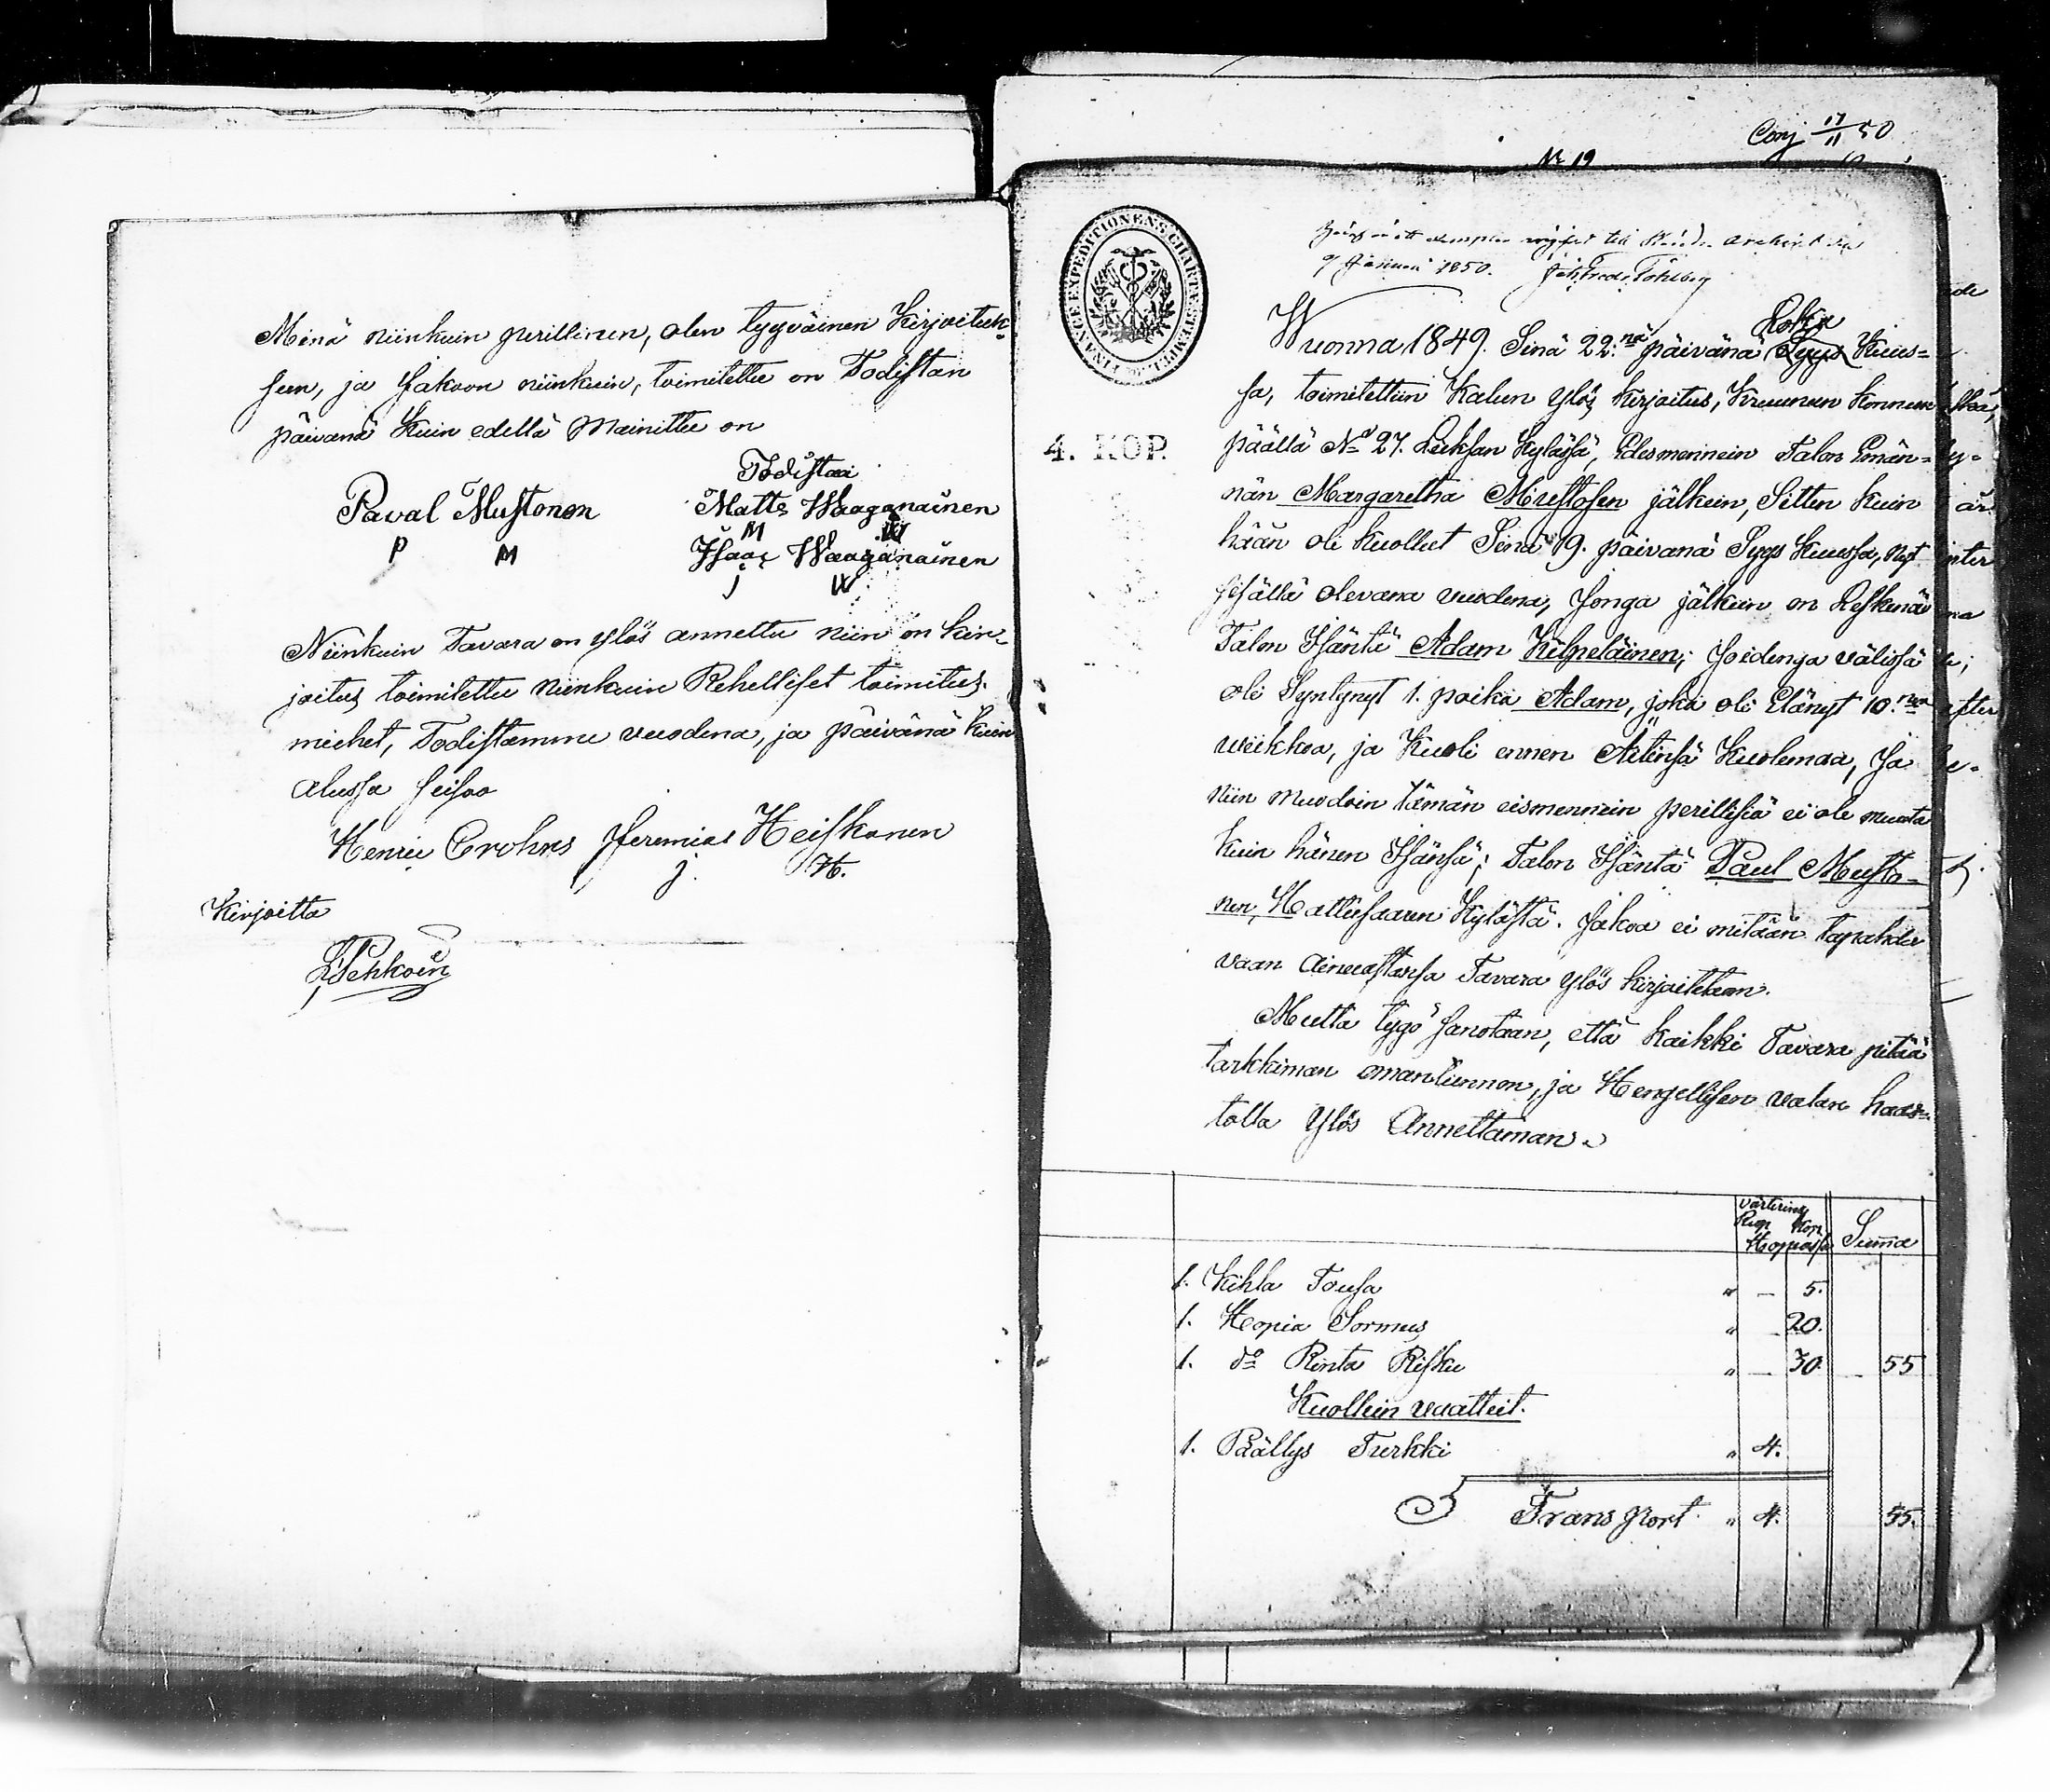 Minä niinkuin perillinen, olen tyyväinen Kirjoituk-
seen, ja Jakoon niinkuin, toimitettu on Todistan
päivänä Kuin edellä Mainittu on
Todistaa
Paval Mustonen
Matts Waaganainen
P M
M W
Isaac Waaganainen
J W
Niinkuin Tavara on ylös annettu niin on kir-
joitus toimitettu niinkuin Rehelliset toimitus
miehet, Todistamme vuodena, ja päivänä kuin
alussa seisoo
Henric Crohns Jeremias Heiskanen
J. H.
Kirjoitta
Pehkoin
Conj 17/11 50
No 19
FINANCE EXPEDITIONENS CHARTÆ STEMPEL
till archivet
9 Januari 1850.
Loka
Wuonna 1849. Sinä 22:nä päivänä Syys Kuus-
sa, toimitettiin Kalun ylös kirjoitus, Kruunun Konnun
4. KOP.
päällä No 27. Lieksan Kylässä, Edesmennein Talon Emän-
nän Margaretha Mustosen jälkein, Sitten kuin
hään oli kuollut Sinä 19. päivanä Syys Kuussa, nyt
sisällä olevana vuodena, Jonga jälkein on Leskenä
Talon Isäntä Adam Kilpeläinen; Joidenga välissä
oli Syntynyt 1. poika Adam, joka oli Elänyt 10.
wiikkoa, ja Kuoli ennen Äitinsä Kuolemaa, Ja
niin muodoin tämän eismennein perillisiä ei ole muuta
kuin hänen Isänsä; Talon Isäntä Paul Musto-
nen, Hattusaaren Kylästä. Jakoa ei mitään tapahdu
vaan ainuastansa Tavara ylös kirjoitetaan.
Mutta tygö sanotaan, että kaikki Tavara pitää
tarkkiman omantunnon, ja Hengellisen valan haas-
tolla ylös Annettaman.
värtering
Rup Kop
Hopiassa
Suma
1. Kihla Tousa " — 5.
1. Hopia Sormus " 20.
1. do Rinta Risku " — 30. 55
Kuollein vaatteit.
1. Päällys Turkki " 4.
Transport " 4. 55.